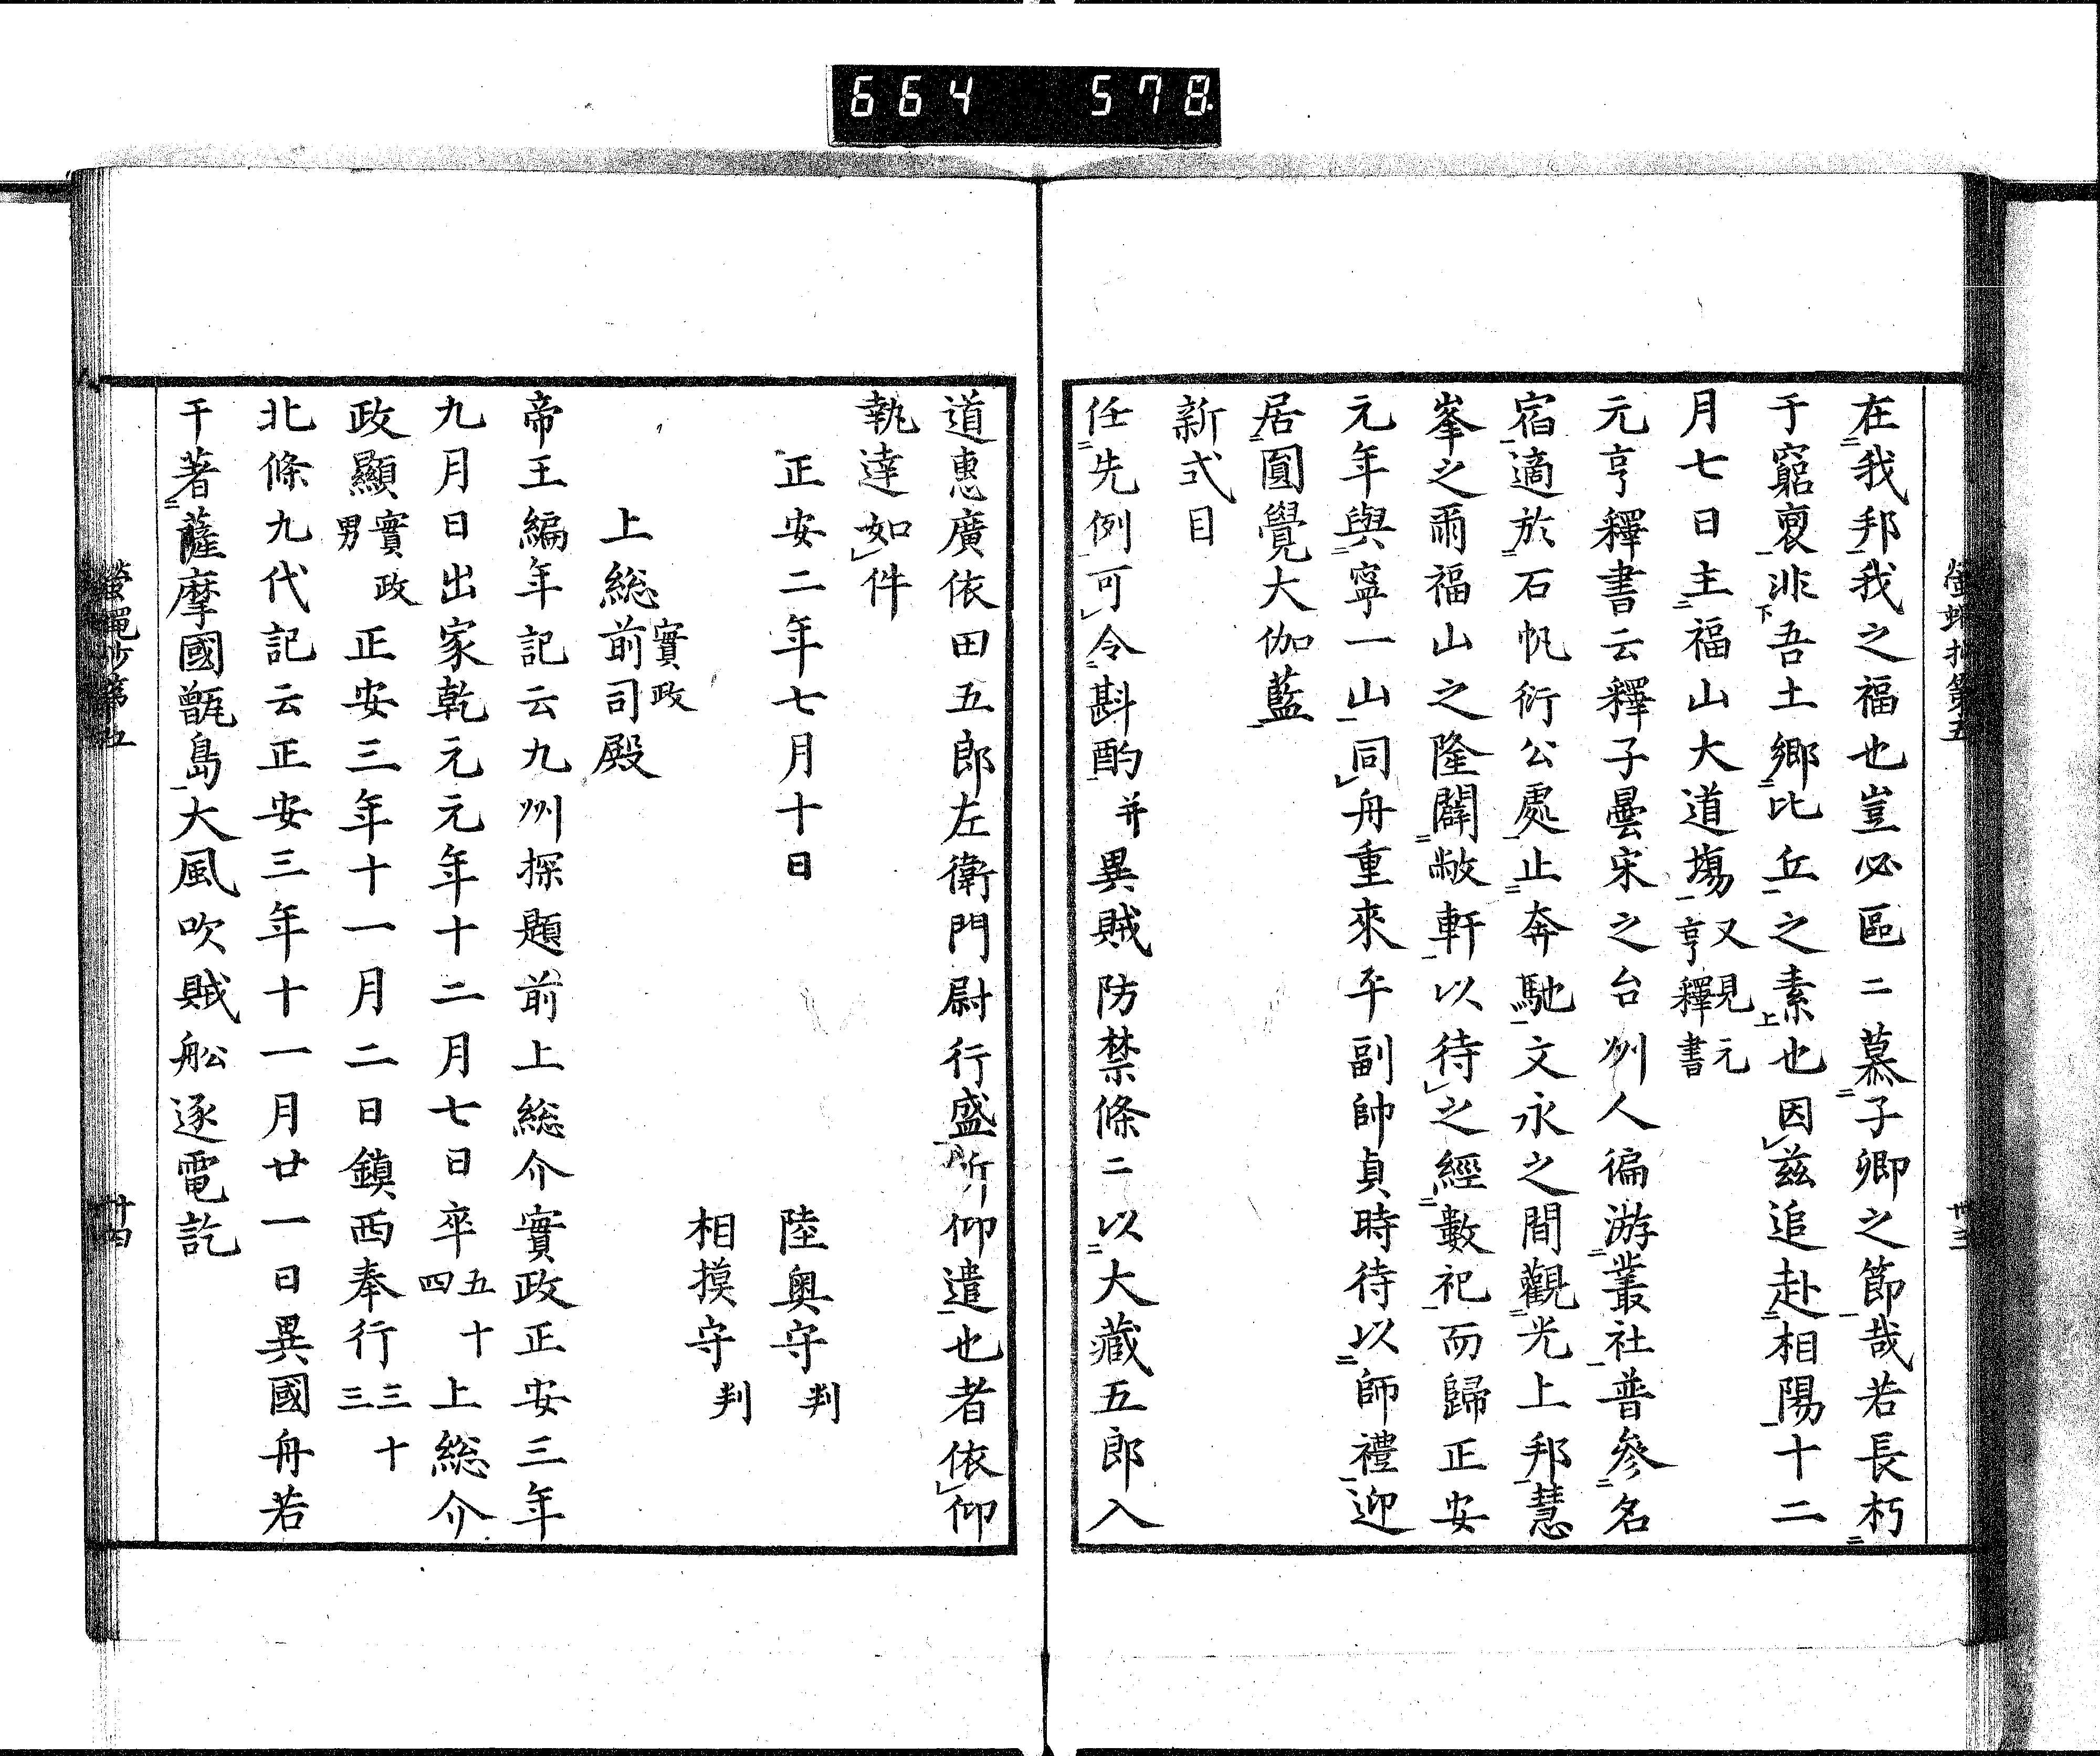 664 578
螢蠅抄第五 卅三
在我邦我之福也豈必區〻慕子卿之節哉若長朽
于窮裔非吾土鄉比丘之素也因茲追赴相陽十二
月七日主福山大道塲又見元亨釋書
元亨釋書云釋子曇宋之台州人徧游叢社普參名
宿適於石帆衍公處止奔馳文永之間觀光上邦慧
峯之爾福山之隆闢敞軒以待之經數祀而歸正安
元年與寧一山同舟重來平副帥貞時待以師禮迎
居圓覺大伽藍
新式目
任先例可令斟酌并異賊防禁條〻以大藏五郎入
道惠廣依田五郎左衛門尉行盛所仰遣也者依仰
執達如件
正安二年七月十日
陸奥守判
相摸守判
上総前司殿實政
帝王編年記云九州探題前上総介實政正安三年
九月日出家乾元元年十二月七日卒五十四上総介
政顯實政男正安三年十一月二日鎮西奉行三十三
北條九代記云正安三年十一月廿一日異國舟若
干著薩摩國甑島大風吹賊舩逐電訖
螢蠅抄第五 卅四